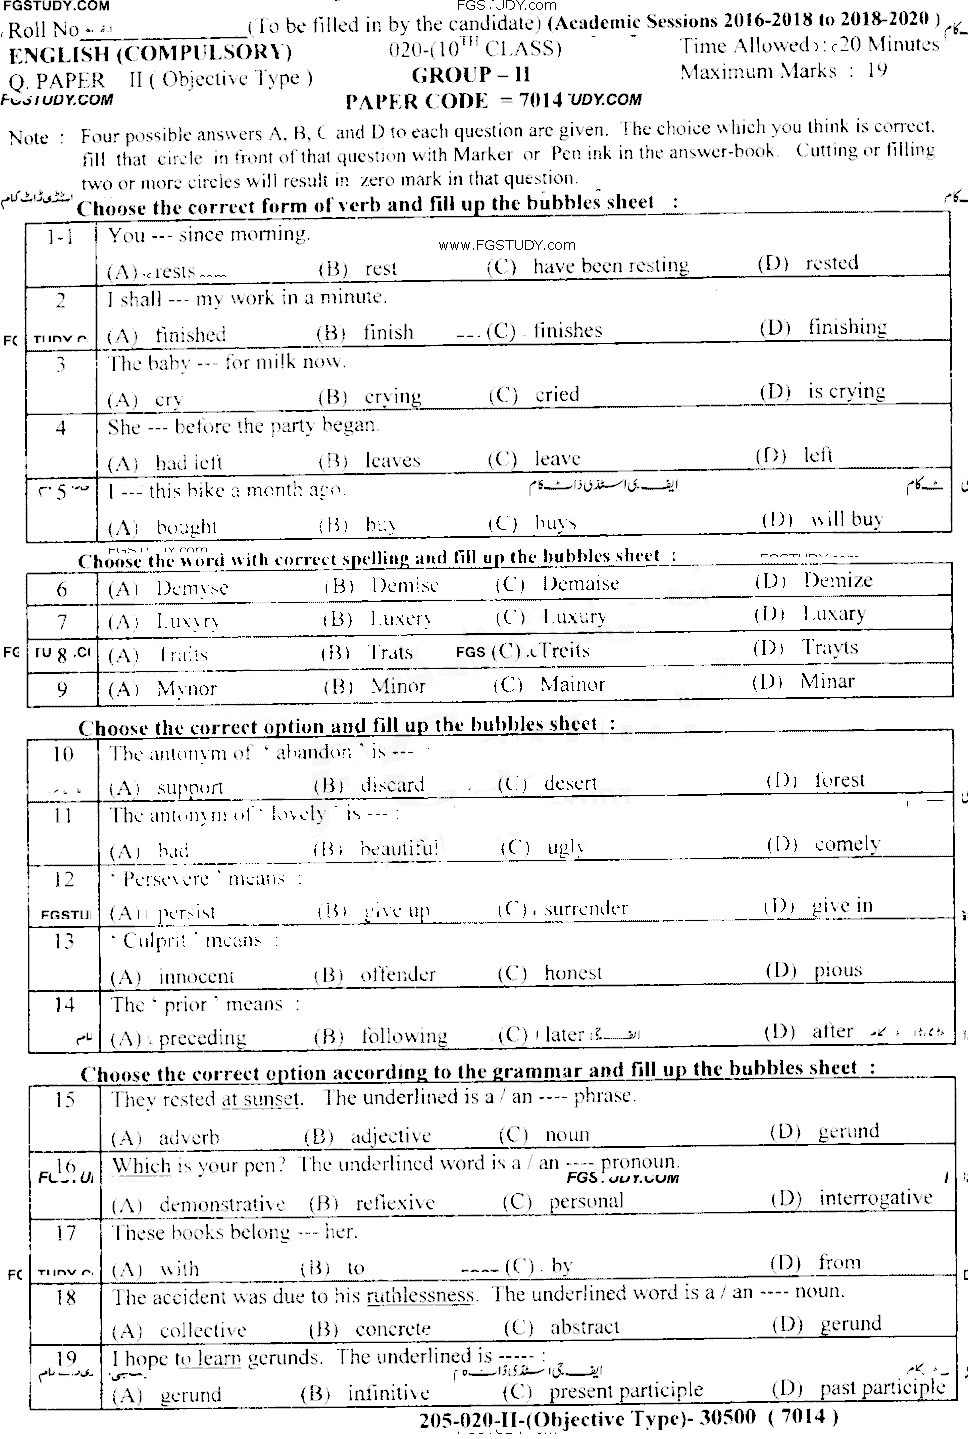 FGSTUDY.COM
Roll No (To be filled in by the candidate) (Academic Sessions 2016-2018 to 2018-2020 )
ENGLISH (COMPULSORY) 020-(10TH CLASS) Time Allowed : 20 Minutes
Q. PAPER II ( Objective Type ) GROUP – II Maximum Marks : 19
PAPER CODE = 7014
Note : Four possible answers A, B, C and D to each question are given. The choice which you think is correct,
fill that circle in front of that question with Marker or Pen ink in the answer-book. Cutting or filling
two or more circles will result in zero mark in that question.
Choose the correct form of verb and fill up the bubbles sheet :
1-1 You --- since morning.
www.FGSTUDY.com
(A) rests (B) rest (C) have been resting (D) rested
2 I shall --- my work in a minute.
(A) finished (B) finish (C) finishes (D) finishing
3 The baby --- for milk now.
(A) cry (B) crying (C) cried (D) is crying
4 She --- before the party began.
(A) had left (B) leaves (C) leave (D) left
5 I --- this bike a month ago.
(A) bought (B) buy (C) buys (D) will buy
Choose the word with correct spelling and fill up the bubbles sheet :
6 (A) Demyse (B) Demise (C) Demaise (D) Demize
7 (A) Luxyry (B) Luxery (C) Luxury (D) Luxary
8 (A) Traits (B) Trats (C) Treits (D) Trayts
9 (A) Mynor (B) Minor (C) Mainor (D) Minar
Choose the correct option and fill up the bubbles sheet :
10 The antonym of ‘ abandon ’ is --- :
(A) support (B) discard (C) desert (D) forest
11 The antonym of ‘ lovely ’ is --- :
(A) bad (B) beautiful (C) ugly (D) comely
12 ‘ Persevere ’ means :
(A) persist (B) give up (C) surrender (D) give in
13 ‘ Culprit ’ means :
(A) innocent (B) offender (C) honest (D) pious
14 The ‘ prior ’ means :
(A) preceding (B) following (C) later (D) after
Choose the correct option according to the grammar and fill up the bubbles sheet :
15 They rested at sunset. The underlined is a / an ---- phrase.
(A) adverb (B) adjective (C) noun (D) gerund
16 Which is your pen? The underlined word is a / an ---- pronoun.
(A) demonstrative (B) reflexive (C) personal (D) interrogative
17 These books belong --- her.
(A) with (B) to (C) by (D) from
18 The accident was due to his ruthlessness. The underlined word is a / an ---- noun.
(A) collective (B) concrete (C) abstract (D) gerund
19 I hope to learn gerunds. The underlined is ----- :
(A) gerund (B) infinitive (C) present participle (D) past participle
205-020-II-(Objective Type)- 30500 ( 7014 )